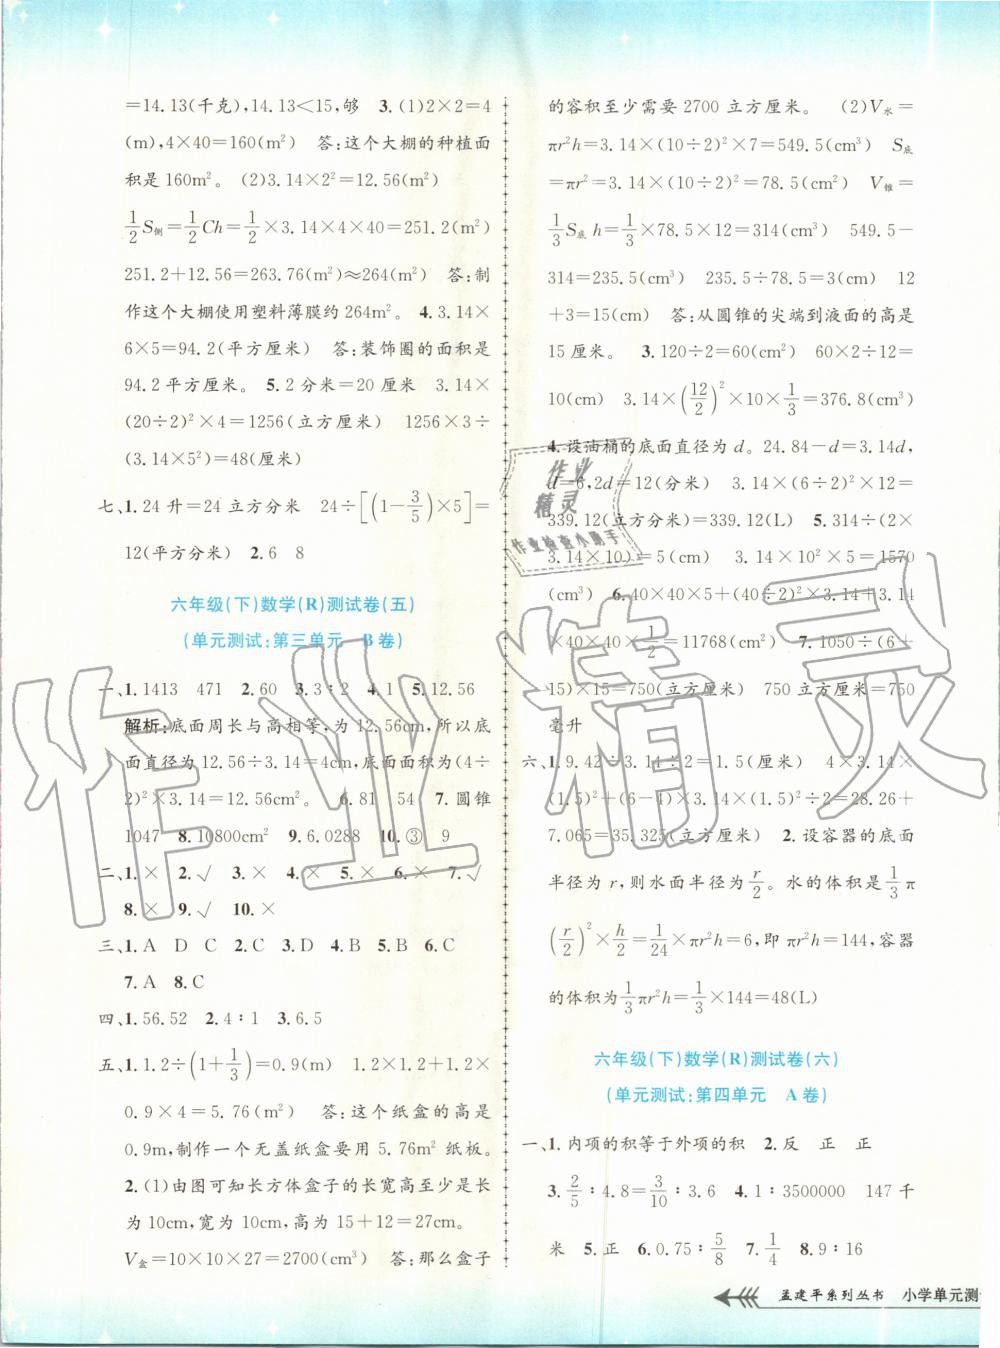 =14.13(千克),14.13<15,够 3.(1)2×2=4
(m),4×40=160(m²) 答:这个大棚的种植面
积是160m²。 (2)3.14×2²=12.56(m²)
1/2S侧=1/2Ch=1/2×3.14×4×40=251.2(m²)
251.2+12.56=263.76(m²)≈264(m²) 答:制
作这个大棚使用塑料薄膜约264m²。 4.3.14×
6×5=94.2(平方厘米) 答:装饰圈的面积是
94.2平方厘米。 5.2分米=20厘米 3.14×
(20÷2)²×4=1256(立方厘米) 1256×3÷
(3.14×5²)=48(厘米)
七、1.24升=24立方分米 24÷[(1-3/5)×5]=
12(平方分米) 2.6 8
六年级(下)数学(R)测试卷(五)
(单元测试:第三单元 B卷)
一、1.1413 471 2.60 3.3∶2 4.1 5.12.56
解析:底面周长与高相等,为12.56cm,所以底
面直径为12.56÷3.14=4cm,底面面积为(4÷
2)²×3.14=12.56cm²。 6.81 54 7.圆锥
1047 8.10800cm² 9.6.0288 10.③ 9
二、1.× 2.√ 3.× 4.× 5.× 6.× 7.√
8.× 9.√ 10.×
三、1.A D C 2.C 3.D 4.B 5.B 6.C
7.A 8.C
四、1.56.52 2.4∶1 3.6.5
五、1.1.2÷(1+1/3)=0.9(m) 1.2×1.2+1.2×
0.9×4=5.76(m²) 答:这个纸盒的高是
0.9m,制作一个无盖纸盒要用5.76m²纸板。
2.(1)由图可知长方体盒子的长宽高至少是长
为10cm,宽为10cm,高为15+12=27cm。
V盒=10×10×27=2700(cm³) 答:那么盒子
的容积至少需要2700立方厘米。 (2)V水=
πr²h=3.14×(10÷2)²×7=549.5(cm³) S底
=πr²=3.14×(10÷2)²=78.5(cm²) V锥=
1/3S底h=1/3×78.5×12=314(cm³) 549.5-
314=235.5(cm³) 235.5÷78.5=3(cm) 12
+3=15(cm) 答:从圆锥的尖端到液面的高是
15厘米。 3.120÷2=60(cm²) 60×2÷12=
10(cm) 3.14×(12/2)²×10×1/3=376.8(cm³)
4.设油桶的底面直径为d。24.84-d=3.14d,
d=6,2d=12(分米) 3.14×(6÷2)²×12=
339.12(立方分米)=339.12(L) 5.314÷(2×
3.14×10)=5(cm) 3.14×10²×5=1570
(cm³) 6.40×40×5+(40÷2)²×3.14+3.14
×40×40×1/2=11768(cm²) 7.1050÷(6+
15)×15=750(立方厘米) 750立方厘米=750
毫升
六、1.9.42÷3.14÷2=1.5(厘米) 4×3.14×
(1.5)²+(1.5)²×3.14×2÷2=28.26+
7.065=35.325(立方厘米) 2.设容器的底面
半径为r,则水面半径为r/2。水的体积是1/3π
(r/2)²×h/2=1/24×πr²h=6,即πr²h=144,容器
的体积为1/3πr²h=1/3×144=48(L)
六年级(下)数学(R)测试卷(六)
(单元测试:第四单元 A卷)
一、1.内项的积等于外项的积 2.反 正 正
3.2/5∶4.8=3/10∶3.6 4.1∶3500000 147千
米 5.正 6.0.75∶5/8 7.1/4 8.9∶16
孟建平系列丛书 小学单元测
作业精灵
作业检查小助手
作业精灵